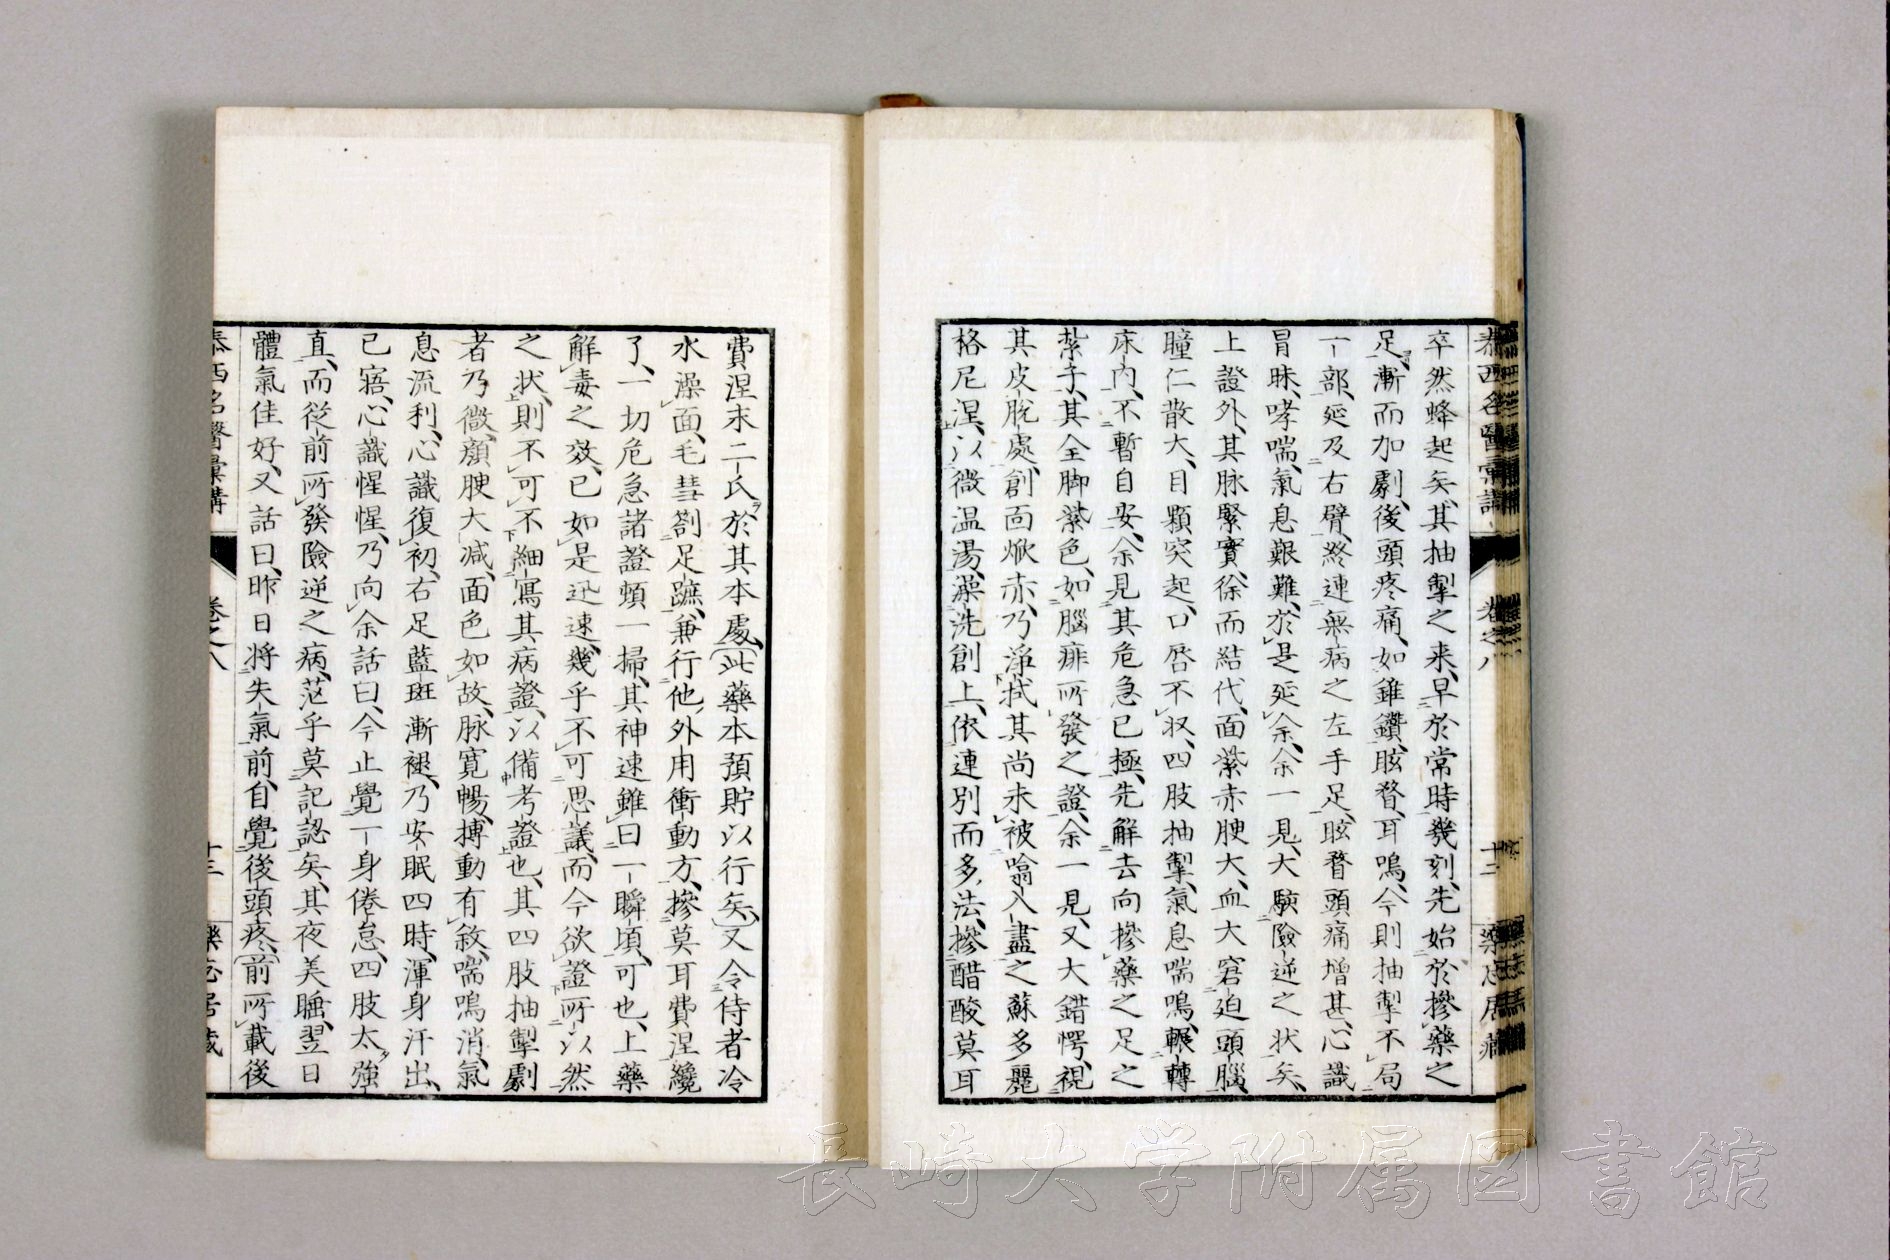 泰西名醫彙講 卷之八 十二 藥忘居藏
卒然蜂起矣、其抽掣之来、早於常時幾刻、先始於摻藥之
足、漸而加劇、後頭疼痛、如錐鑽、眩瞀、耳鳴、今則抽掣不局
一部、延及右臂、終連無病之左手足、眩瞀頭痛增甚、心識
冒昧、哮喘、氣息艱難、於是延余、余一見、大駭險逆之状矣、
上證外、其脉緊實、徐而結代、面紫赤腴大、血大窘迫頭腦、
瞳仁散大、目顆突起、口唇不収、四肢抽掣、氣息喘鳴、輾轉
床内、不暫自安、余見其危急已極、先解去向摻藥之足之
紮予、其全脚紫色、如腦痱所發之證、余一見、又大錯愕、視
其皮脱處、創面焮赤、乃淨拭其尚未被噏入盡之蘇多麗
格尼涅、以微温湯澡洗創上、依連別而多法、摻醋酸莫耳
費涅末二氏於其本處、(此藥本預貯以行矣、)又令侍者冷
水澡面、毛彗劄足蹠、兼行他外用衝動方、摻莫耳費涅纔
了、一切危急諸證頓一掃、其神速雖曰一瞬頃、可也、上藥
解毒之效、已如是迅速、幾乎不可思議、而今欲證所以然
之状、則不可不細寫其病證、以備考證也、其四肢抽掣劇
者乃微、顔腴大減、面色如故、脉寛暢、搏動有敘、喘鳴消、氣
息流利、心識復初、右足藍斑漸褪、乃安眠四時、渾身汗出、
已寤、心識惺惺、乃向余話曰、今止覺一身倦怠、四肢太強
直、而従前所發險逆之病、茫乎莫記認矣、其夜美睡、翌日
體氣佳好、又話曰、昨日将失氣前、自覺後頭疼、(前所載後
泰西名醫彙講 卷之八 十三 藥忘居藏
長崎大学附属図書館